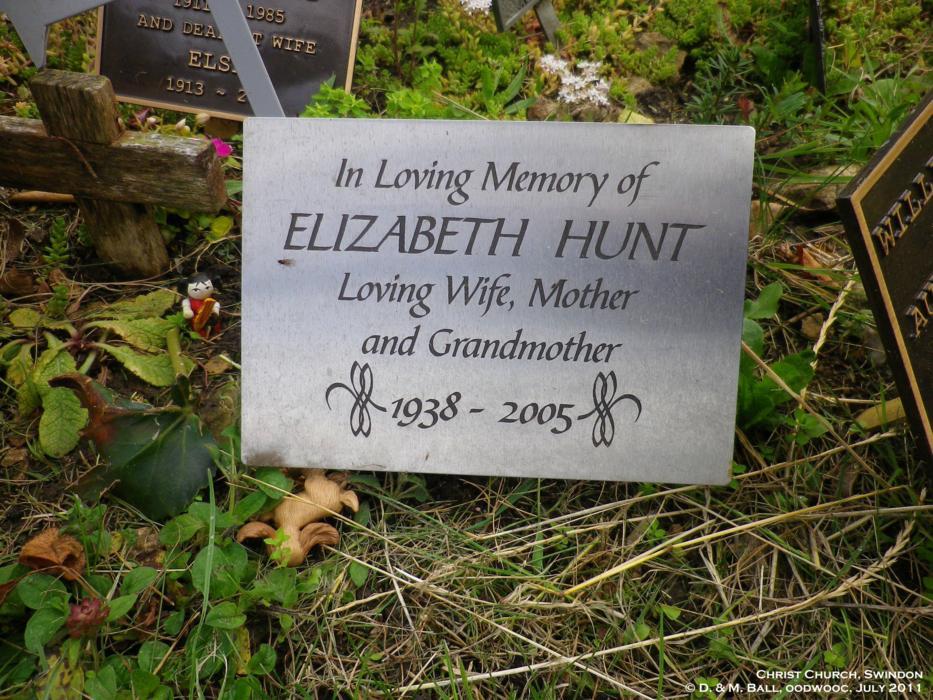 1985
AND DEAR WIFE
1913 ~ 2
In Loving Memory of
ELIZABETH HUNT
Loving Wife, Mother
and Grandmother
1938 - 2005
CHRIST CHURCH, SWINDON
© D. & M. BALL, OODWOOC, JULY 2011